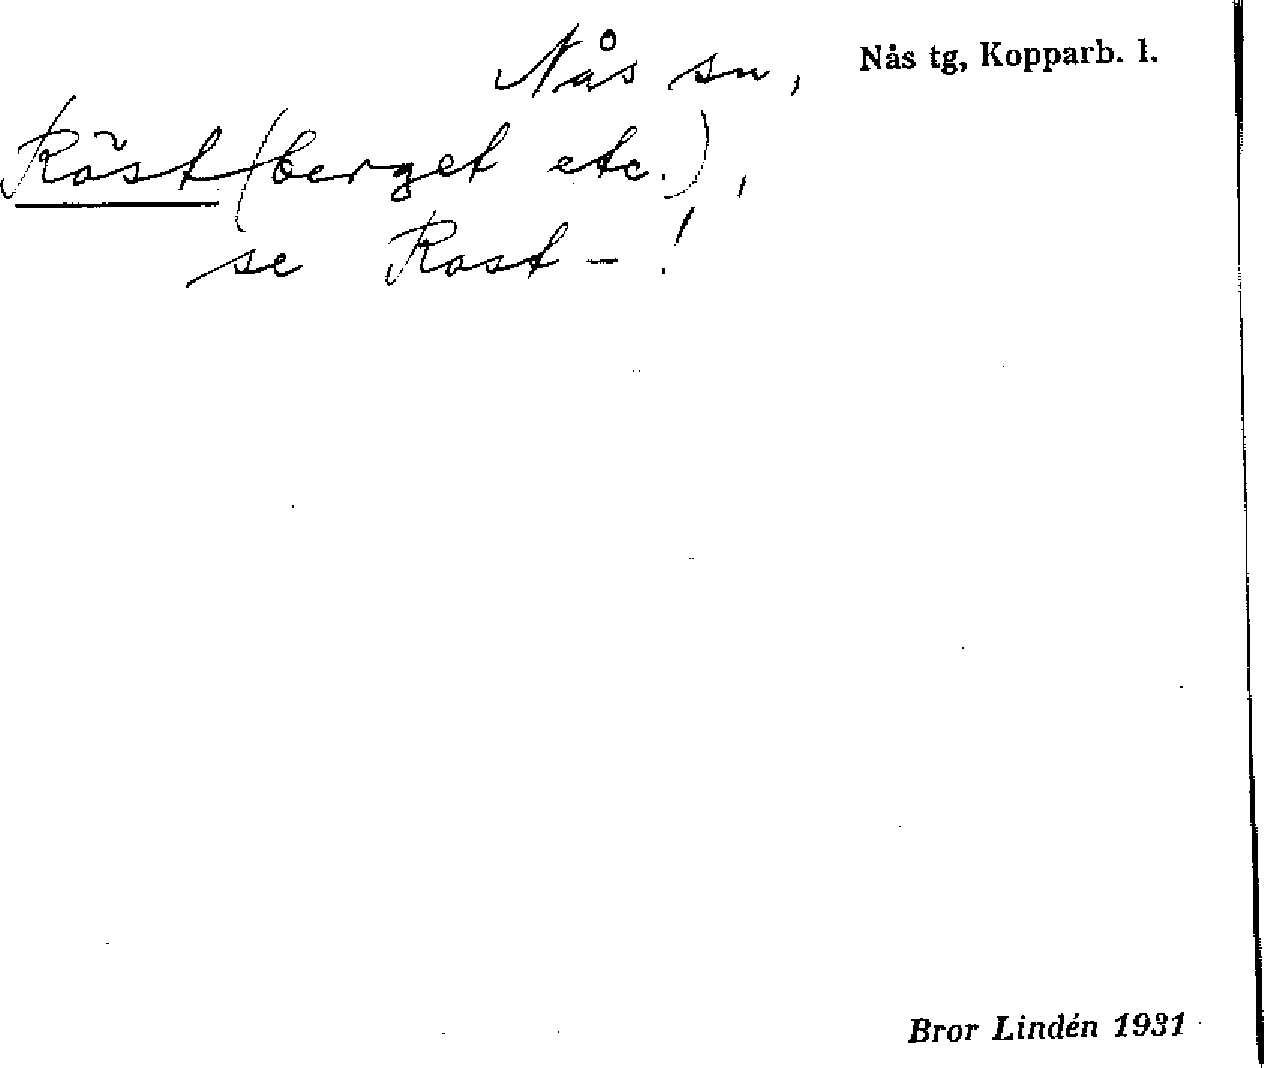 Nås sn, Nås tg, Kopparb. l.
Röst(berget etc.),
se Rost-!
Bror Lindén 1931